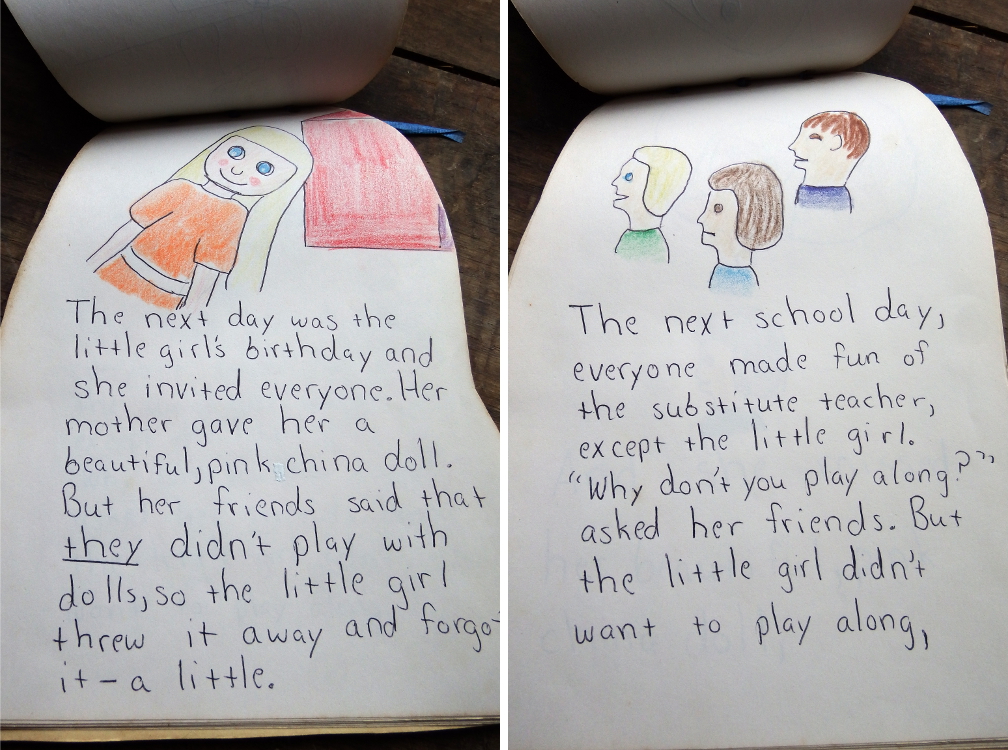 The next day was the
little girl's birthday and
she invited everyone. Her
mother gave her a
beautiful, pink china doll.
But her friends said that
they didn't play with
dolls, so the little girl
threw it away and forgot
it - a little.
The next school day,
everyone made fun of
the substitute teacher,
except the little girl.
"Why don't you play along?"
asked her friends. But
the little girl didn't
want to play along,